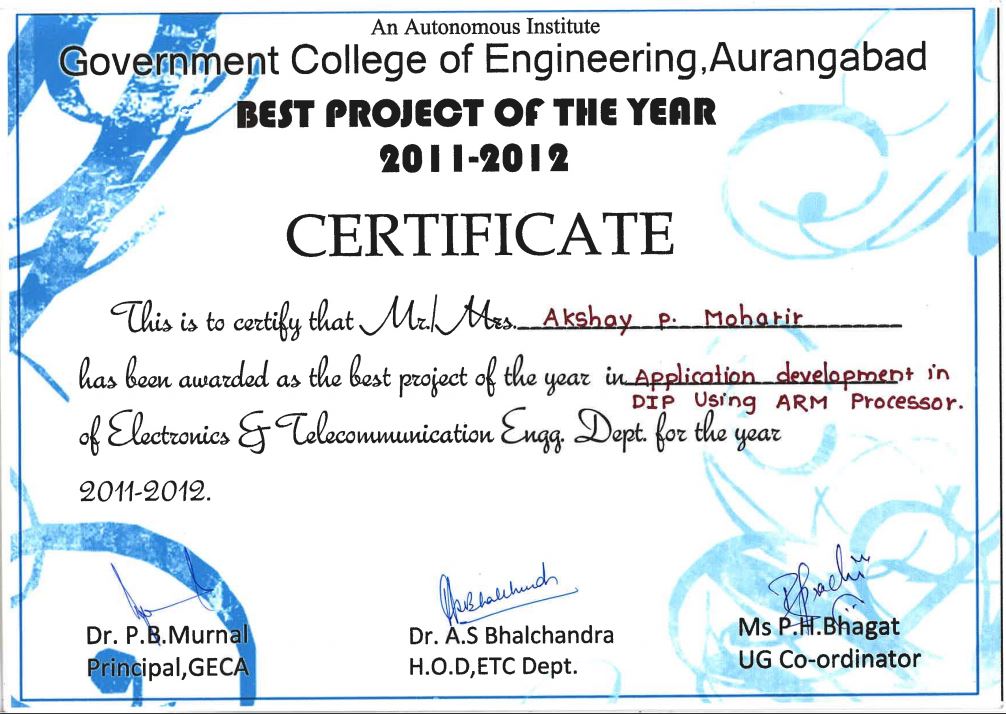 An Autonomous Institute
Government College of Engineering,Aurangabad
BEST PROJECT OF THE YEAR
2011-2012
CERTIFICATE
This is to certify that Mr./Mrs. Akshay P. Moharir
has been awarded as the best project of the year in Application development in
DIP Using ARM Processor.
of Electronics & Telecommunication Engg. Dept. for the year
2011-2012.
Dr. P.B.Murnal
Principal,GECA
Dr. A.S Bhalchandra
H.O.D,ETC Dept.
Ms P.H.Bhagat
UG Co-ordinator